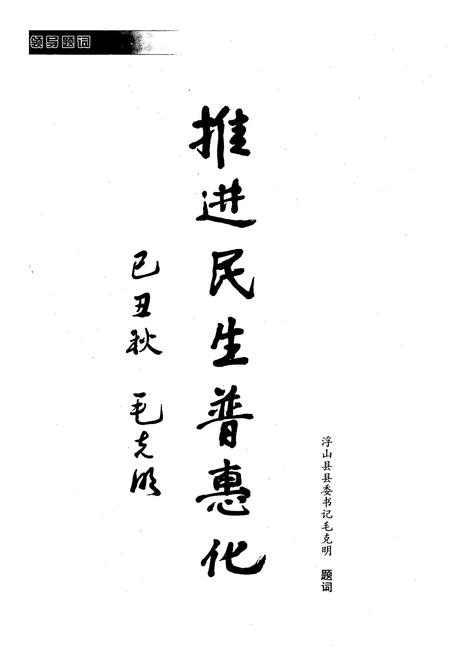 领导题词
推进民生普惠化
己丑秋 毛克明
浮山县县委书记毛克明 题词